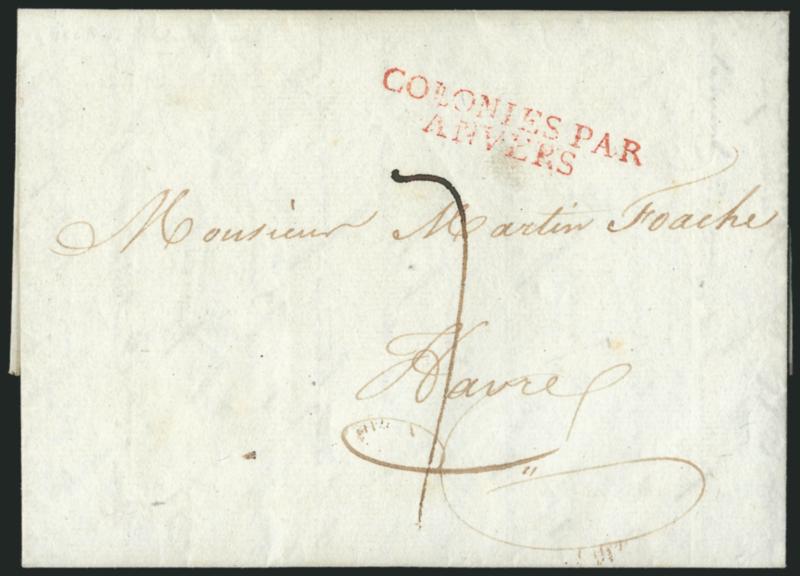 COLONIES PAR
ANVERS
7
Monsieur Martin Foache
Havre